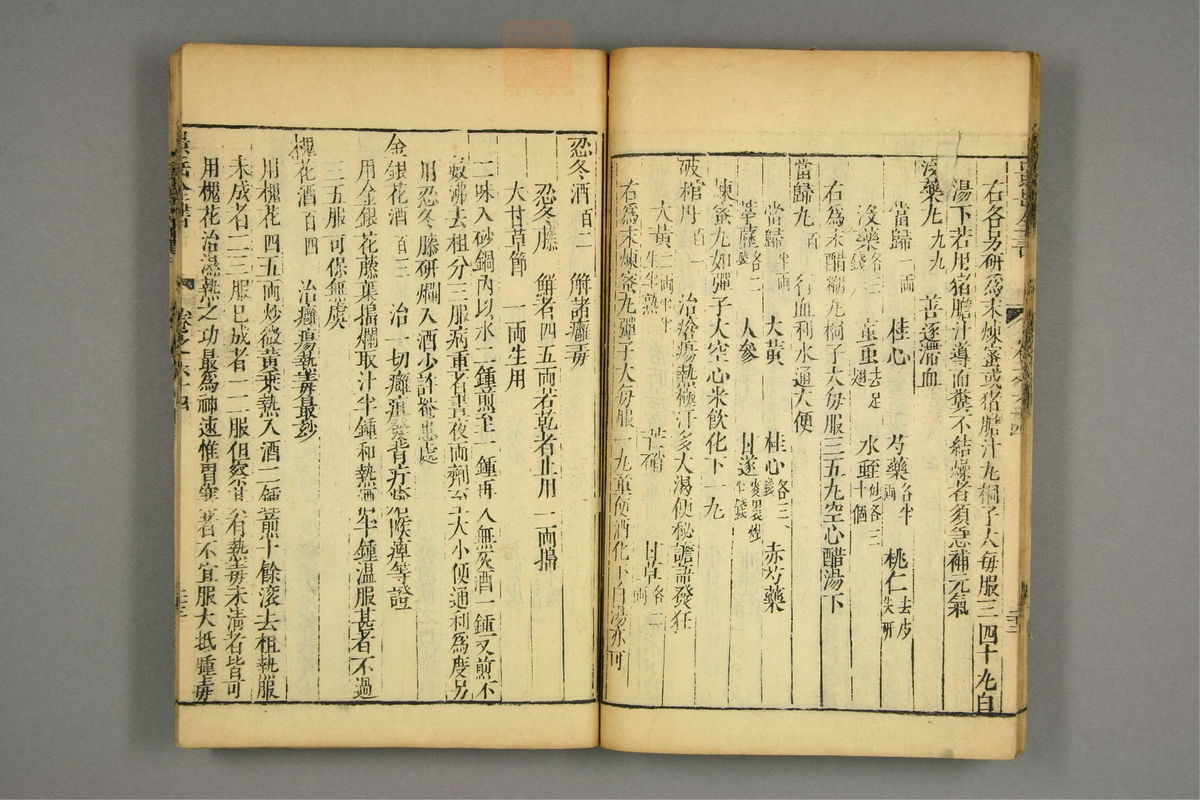 右各另研爲末煉蜜或猪膽汁丸桐子大每服三四十丸白
湯下若用猪膽汁導而糞不結燥者須急補元氣
沒藥丸 九九 善逐滯血
當歸一両 桂心 芍藥各半両 桃仁去皮尖研
沒藥各三錢 䖟虫去足翅 水蛭炒各三十個
右爲末醋糊丸桐子大每服三五丸空心醋湯下
當歸丸 百 行血利水通大便
當歸半両 大黃 桂心各三錢 赤芍藥
葶藶各二錢 人參 甘遂麥裹煨半錢
煉蜜丸如彈子大空心米飲化下一丸
破棺丹 百一 治瘡瘍熱極汗多大渴便秘譫語發狂
大黃二両半半生半熟 芒硝 甘草各二両
右爲末煉蜜丸彈子大每服一丸童便酒化下白湯亦可
忍冬酒 百二 解諸癰毒
忍冬藤 鮮者四五両若乾者止用一両搗
大甘草節 一両生用
二味入砂鍋內以水二鍾煎至一鍾再入無灰酒一鍾又煎不
數沸去柤分三服病重者晝夜両劑至大小便通利爲度另
用忍冬藤研爛入酒少許罨患處
金銀花酒 百三 治一切癰疽發背疔瘡喉痺等證
用金銀花藤葉搗爛取汁半鍾和熱酒半鍾温服甚者不過
三五服可保無虞
槐花酒 百四 治癰瘍熱毒最妙
用槐花四五両炒微黃乗熱入酒二鍾煎十餘滚去柤熱服
未成者二三服已成者一二服但察其有熱毒未清者皆可
用槐花治濕熱之功最爲神速惟胃寒者不宜服大抵腫毒
景岳全書 卷之六十四